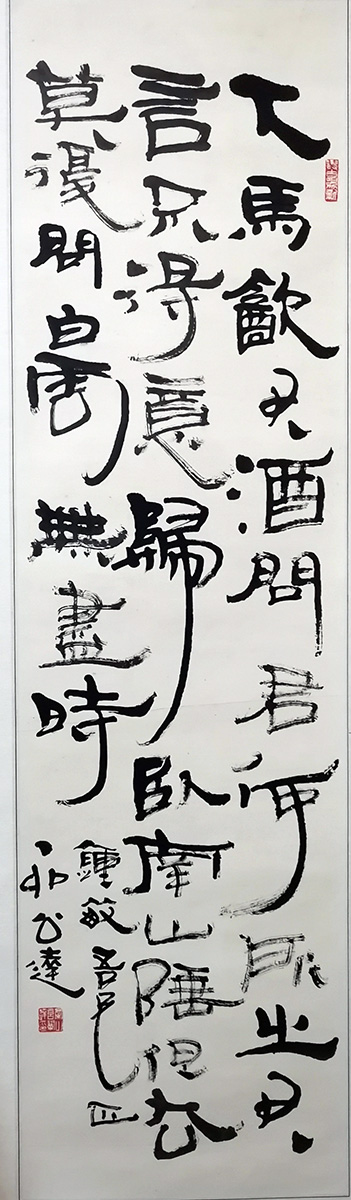 下馬飲君酒問君何所之君
言不得意歸臥南山陲但去
莫復問白雲無盡時
鍾敏吾兄正
公達